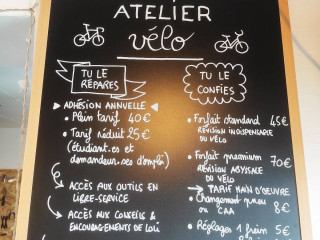 ATELIER
vélo
TU LE
RÉPARES
ADHÉSION ANNUELLE
• Plein tarif 40€
• Tarif réduit 25€
(étudiant.es et
demandeur.ses d'emploi)
ACCÈS AUX OUTILS EN
LIBRE-SERVICE
ACCÈS AUX CONSEILS &
ENCOURAGEMENTS DE
TU LE
CONFIES
• Forfait standard 45€
RÉVISION INDISPENSABLE
DU VÉLO
• Forfait premium 70€
RÉVISION ABYSSALE
DU VÉLO
→ TARIF MAIN D'OEUVRE
• Changement pneu
ou CAA 8€
• Réglages 1 frein 5€